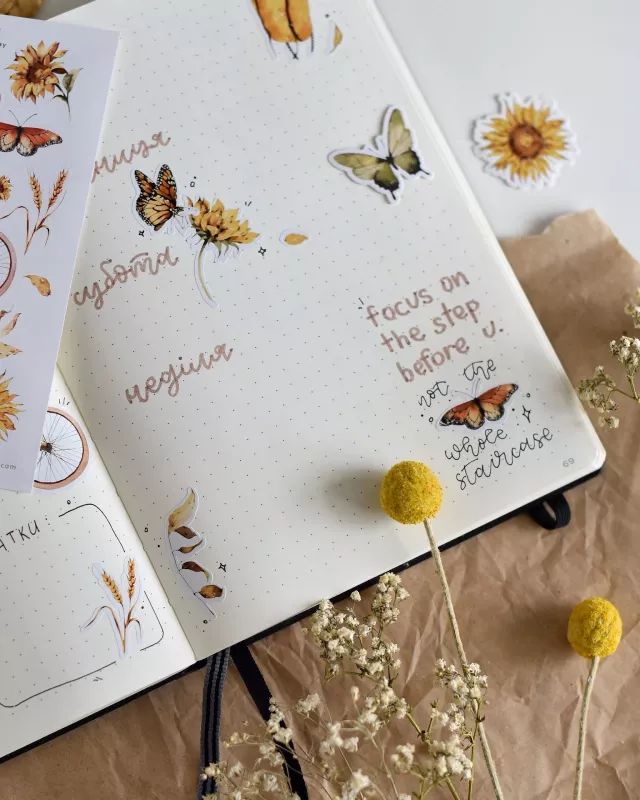 ниця
субота
неділя
focus on
the step
before u
not the
whole
staircase
69
атки
.com